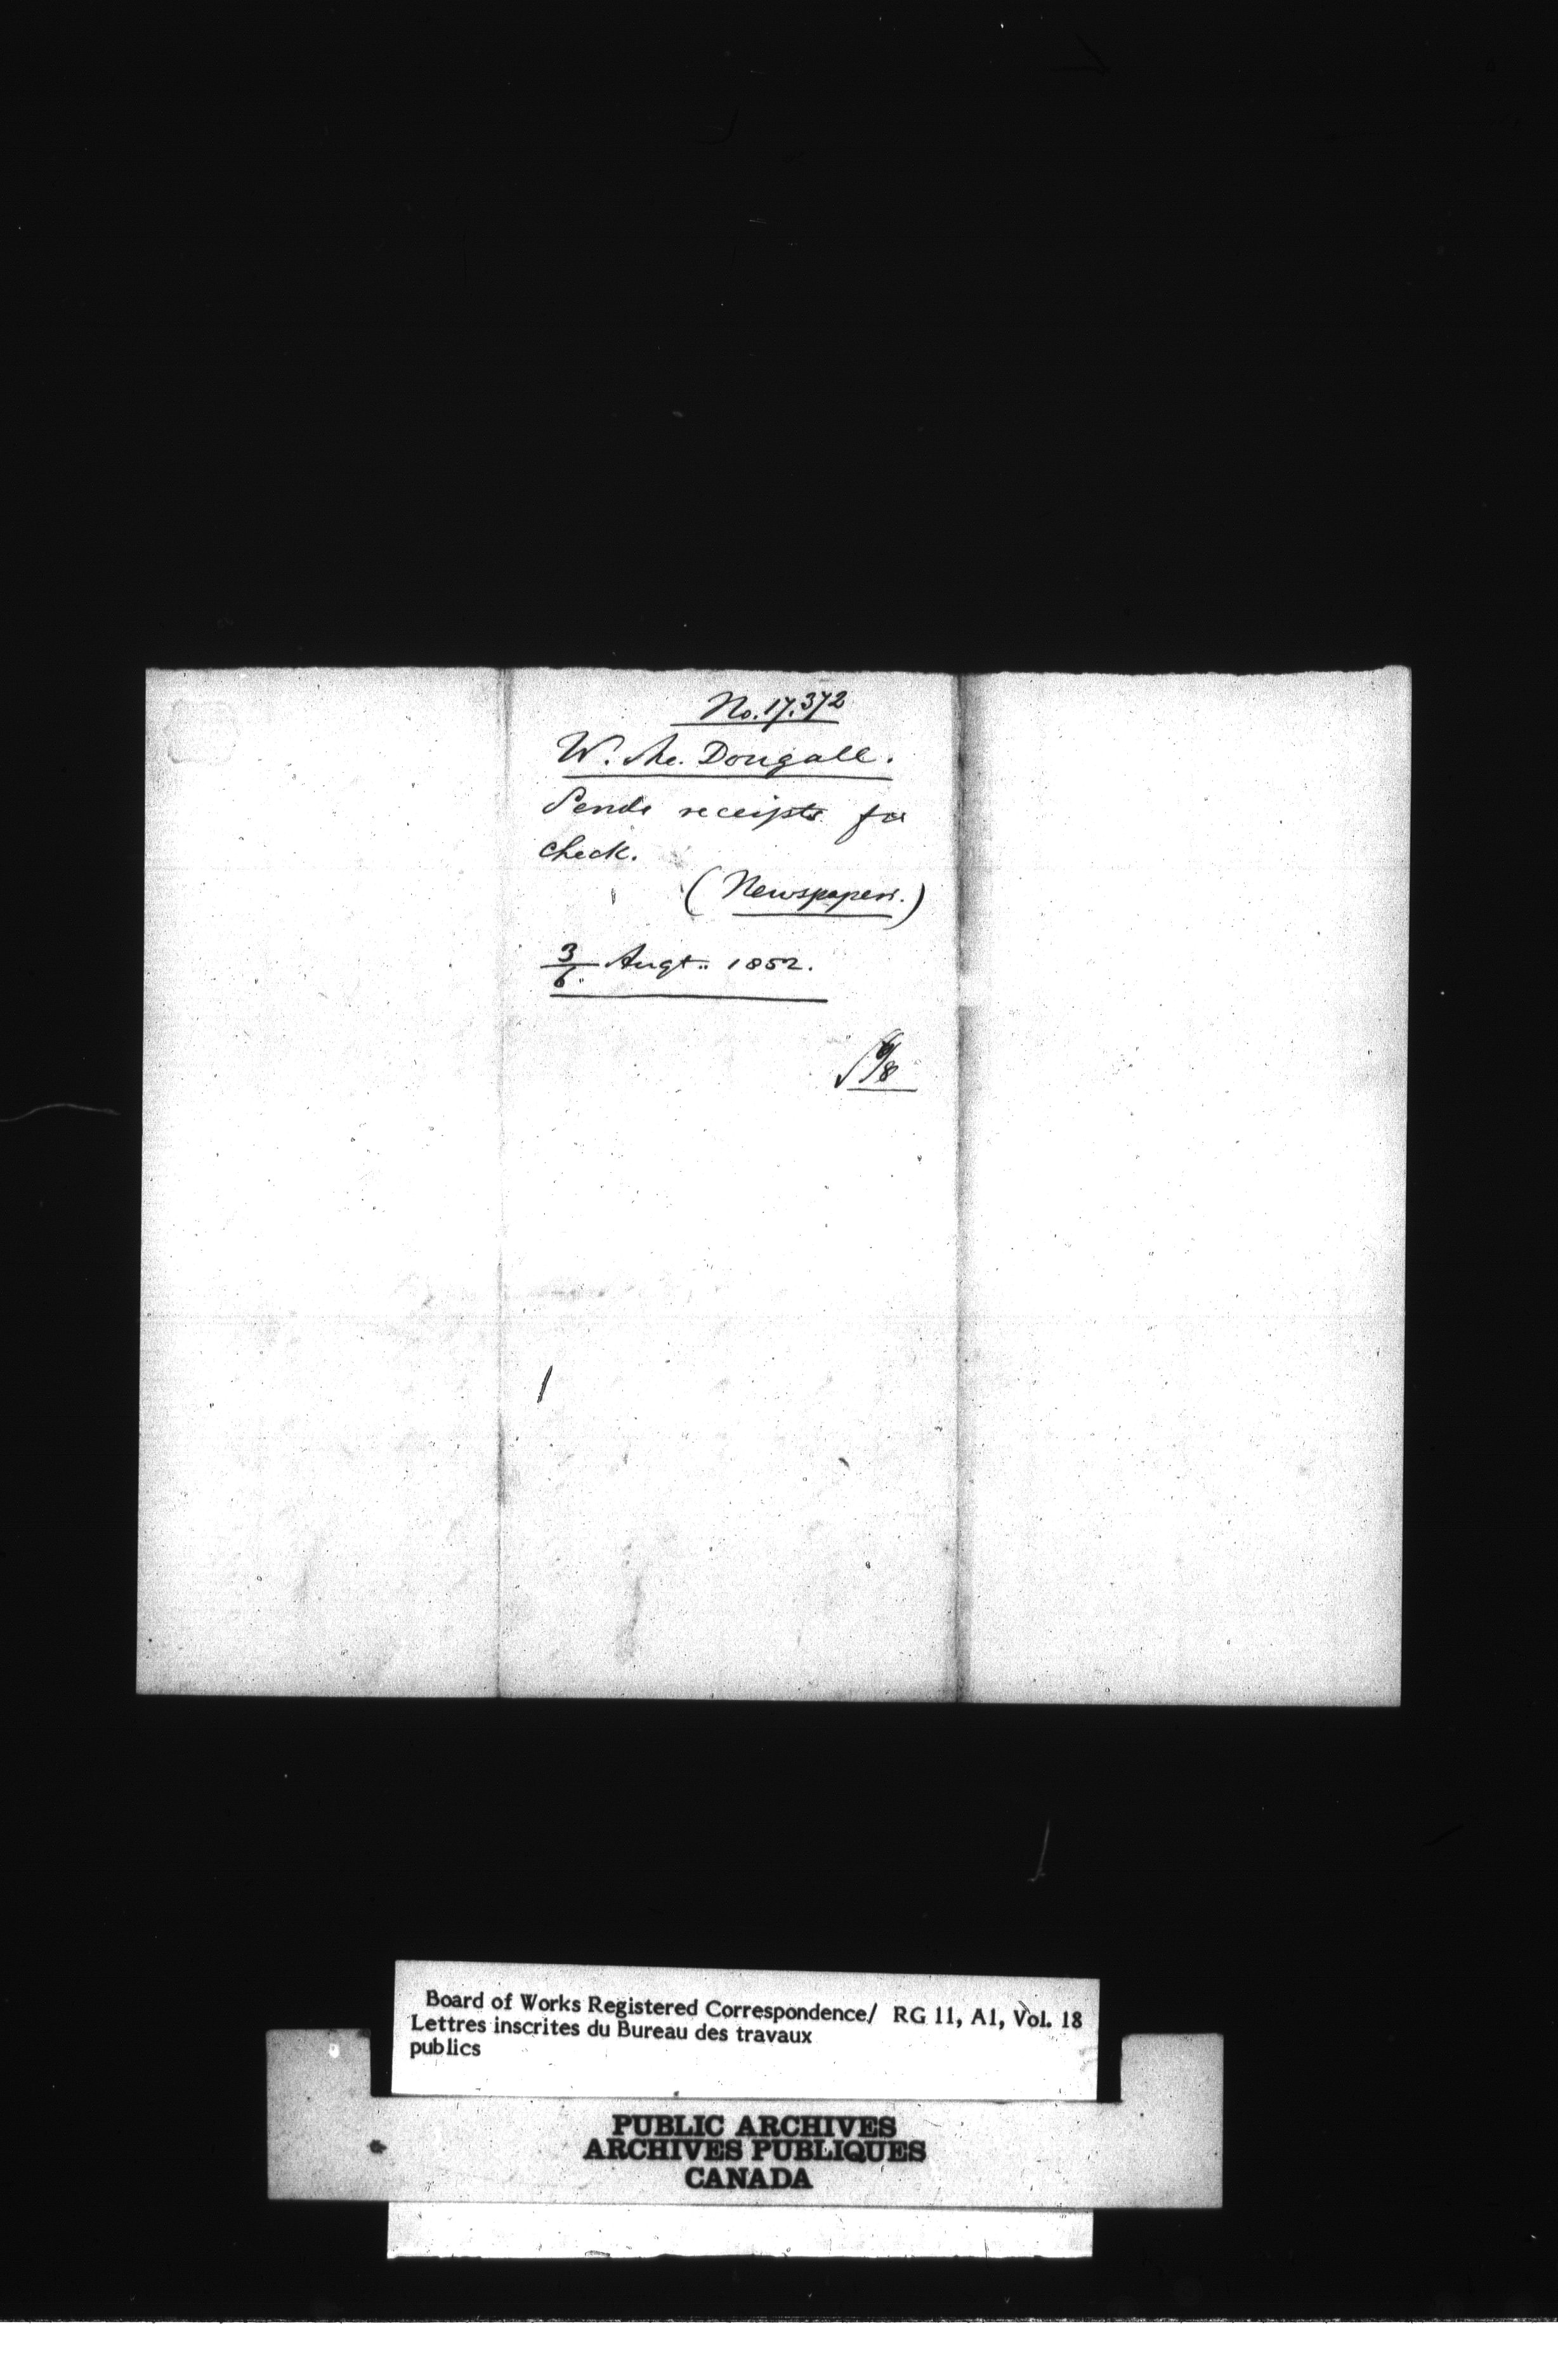 No. 17.372
W. Mc. Dougall.
Sends receipts for
check.
(Newspapers.)
3/6. Augt. 1852.
6/8
Board of Works Registered Correspondence/ RG 11, A1, Vol. 18
Lettres inscrites du Bureau des travaux
publics
PUBLIC ARCHIVES
ARCHIVES PUBLIQUES
CANADA